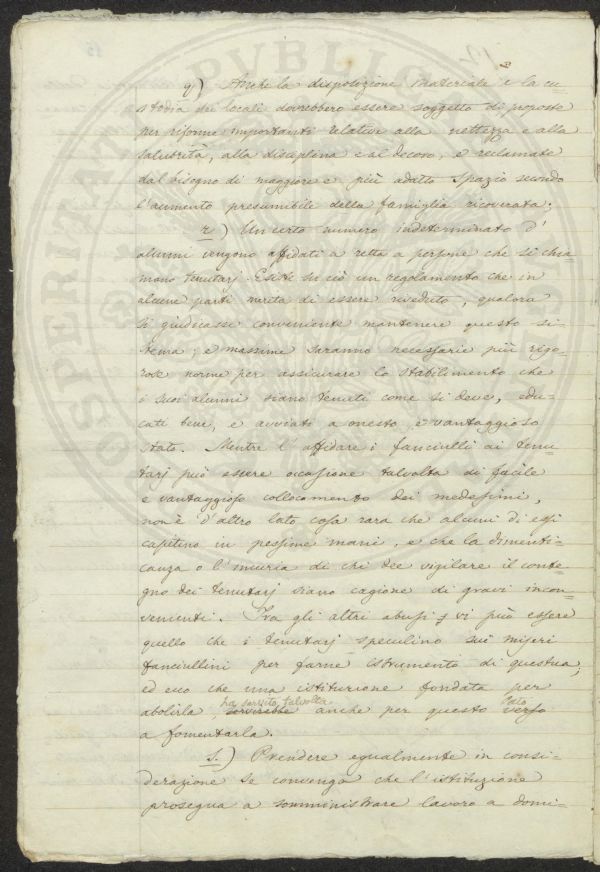 q) Anche la disposizione materiale e la cu-
stodia dei locali dovrebbero essere soggetto di proposte
per riforme importanti relative alla nettezza e alla
salubrità, alla disciplina e al decoro, e reclamate
dal bisogno di maggiore e più adatto spazio secondo
l'aumento presumibile della famiglia ricoverata;
r) Un certo numero indeterminato d'
alunni vengono affidati a retta a persone che si chia
mano tenutarj. Esiste su ciò un regolamento che in
alcune parti merita di essere riveduto, qualora
si giudicasse conveniente mantenere questo si-
stema; e massime saranno necessarie più rigo-
rose norme per assicurare lo stabilimento che
i suoi alunni siano tenuti come si deve, edu-
cati bene, e avviati a onesto, e vantaggioso
stato. Mentre l'affidare i fanciulli ai tenu-
tarj può essere occasione talvolta di facile
e vantaggioso collocamento dei medesimi,
non è d'altro lato cosa rara che alcuni di essi
capitino in pessime mani, e che la dimenti-
canza o l'incuria di chi dee vigilare il conte-
gno dei tenutarj siano cagione di gravi incon-
venienti. Fra gli altri abusi vi può essere
quello che i tenutarj speculino sui miseri
fanciullini per farne istrumento di questua,
ed ecco che una istituzione fondata per
ha servito talvolta lato
abolirla, servirebbe anche per questo verso
a fomentarla.
s.) Prendere egualmente in consi-
derazione se convenga che l'istituzione
prosegua a somministrare lavoro a domi-